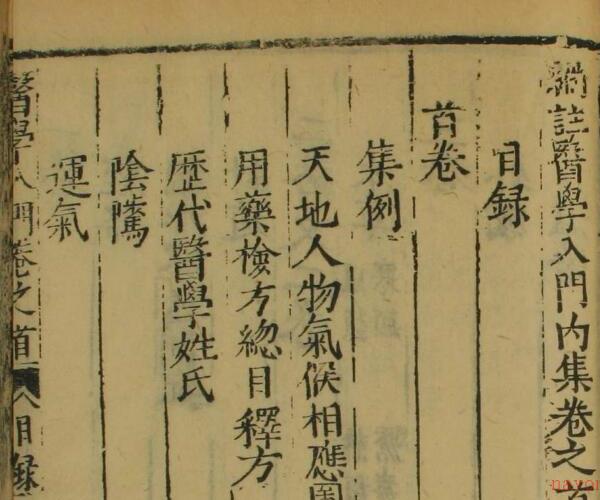 編註醫學入門內集卷之首
目録
首卷
集例
天地人物氣候相應圖
用藥檢方總目釋方
歴代醫學姓氏
陰隲
運氣
醫學入門卷之首 目録